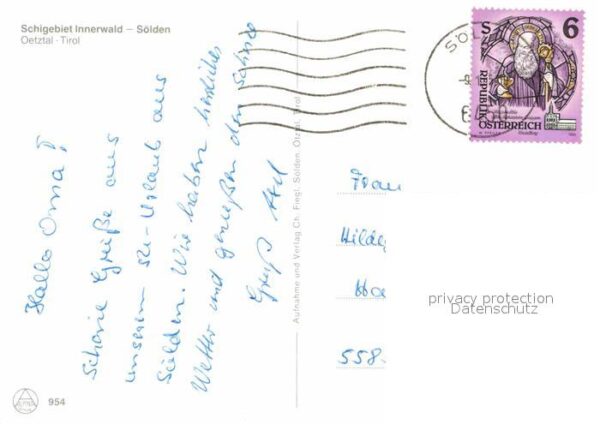 Schigebiet Innerwald – Sölden
Oetztal · Tirol
Hallo Oma!
Schöne Grüße aus
unserem Ski-Urlaub aus
Sölden. Wir haben herrliches
Wetter und genießen den Schnee
Gruß
Aufnahme und Verlag Ch. Fiegl, Sölden, Ötztal, Tirol
S 6
REPUBLIK
ÖSTERREICH
SÖ
Frau
Hilde
Ha
558-
privacy protection
Datenschutz
954